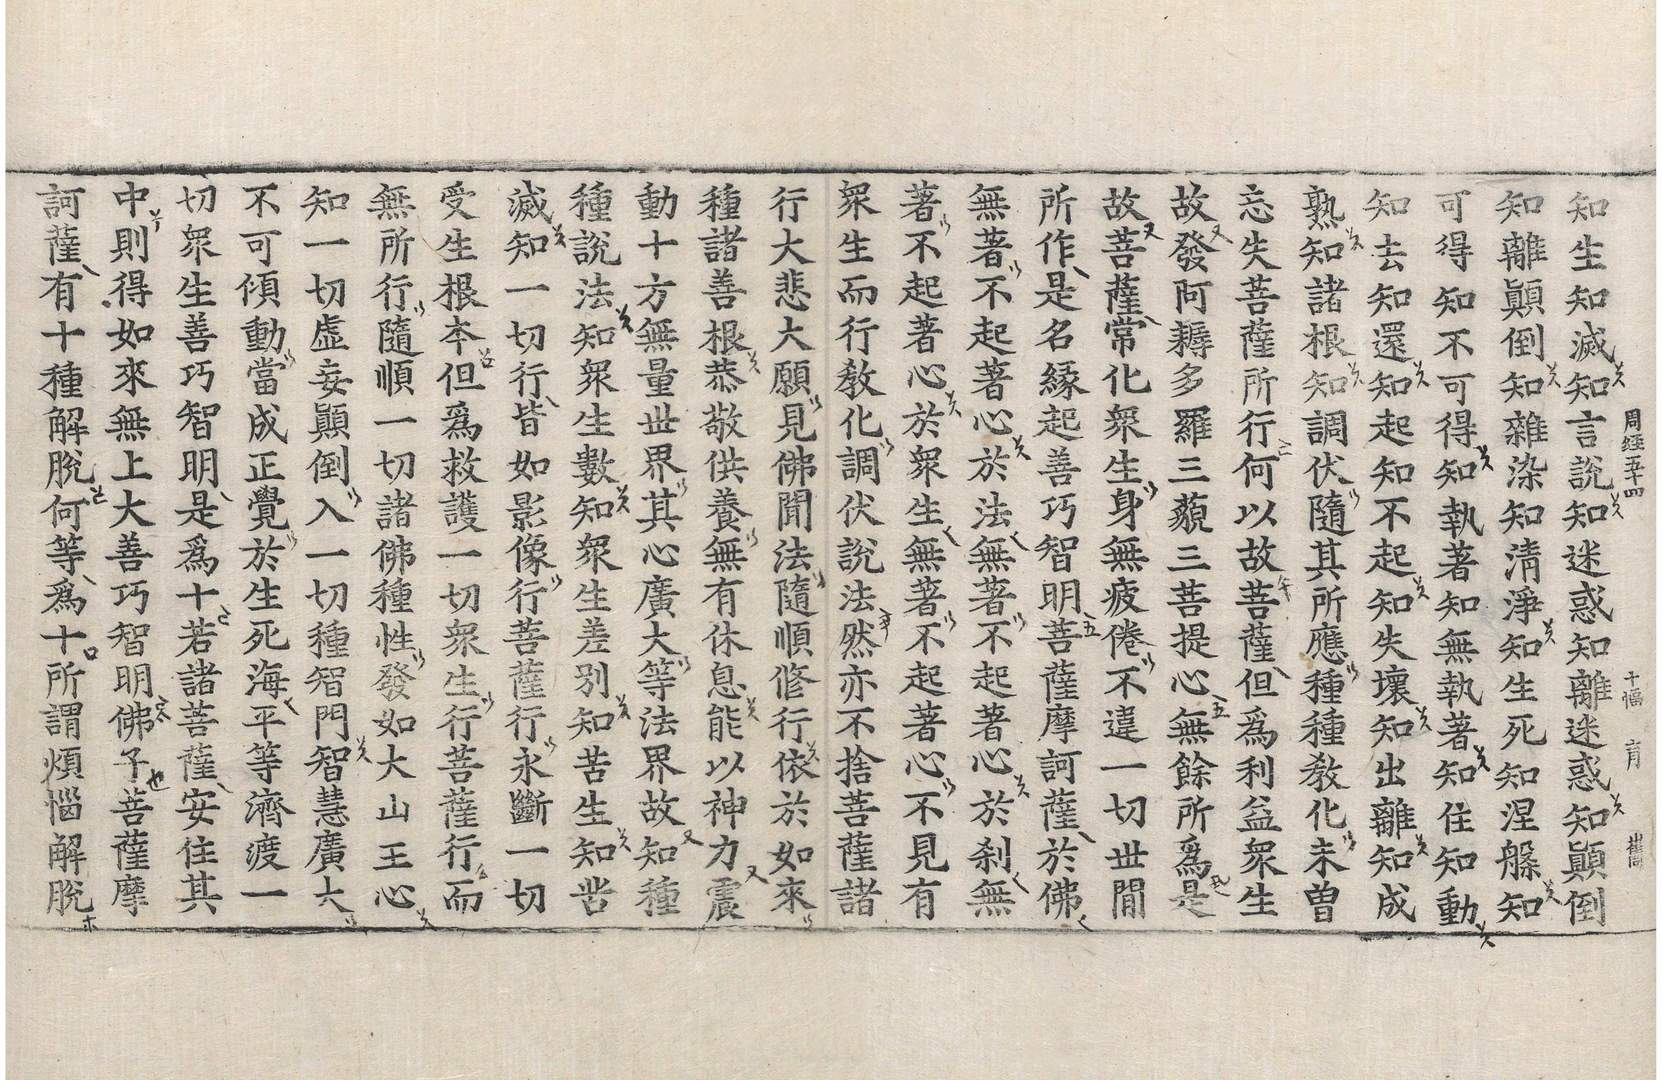 知生知滅知言說知迷惑知離迷惑知顚倒
知離顚倒知雜染知淸淨知生死知涅槃知
可得知不可得知執著知無執著知住知動
知去知還知起知不起知失壞知出離知成
熟知諸根知調伏隨其所應種種敎化未曽
忘失菩薩所行何以故菩薩但爲利益衆生
故發阿耨多羅三藐三菩提心無餘所爲是
故菩薩常化衆生身無疲倦不違一切世間
所作是名緣起善巧智明菩薩摩訶薩於佛
無著不起著心於法無著不起著心於刹無
著不起著心於衆生無著不起著心不見有
衆生而行敎化調伏說法然亦不捨菩薩諸
行大悲大願見佛聞法隨順修行依於如來
種諸善根恭敬供養無有休息能以神力震
動十方無量世界其心廣大等法界故知種
種說法知衆生數知衆生差別知苦生知苦
滅知一切行皆如影像行菩薩行永斷一切
受生根本但爲救護一切衆生行菩薩行而
無所行隨順一切諸佛種性發如大山王心
知一切虛妄顚倒入一切種智門智慧廣大
不可傾動當成正覺於生死海平等濟渡一
切衆生善巧智明是爲十若諸菩薩安住其
中則得如來無上大善巧智明佛子菩薩摩
訶薩有十種解脫何等爲十所謂煩惱解脫
周經五十四
十幅